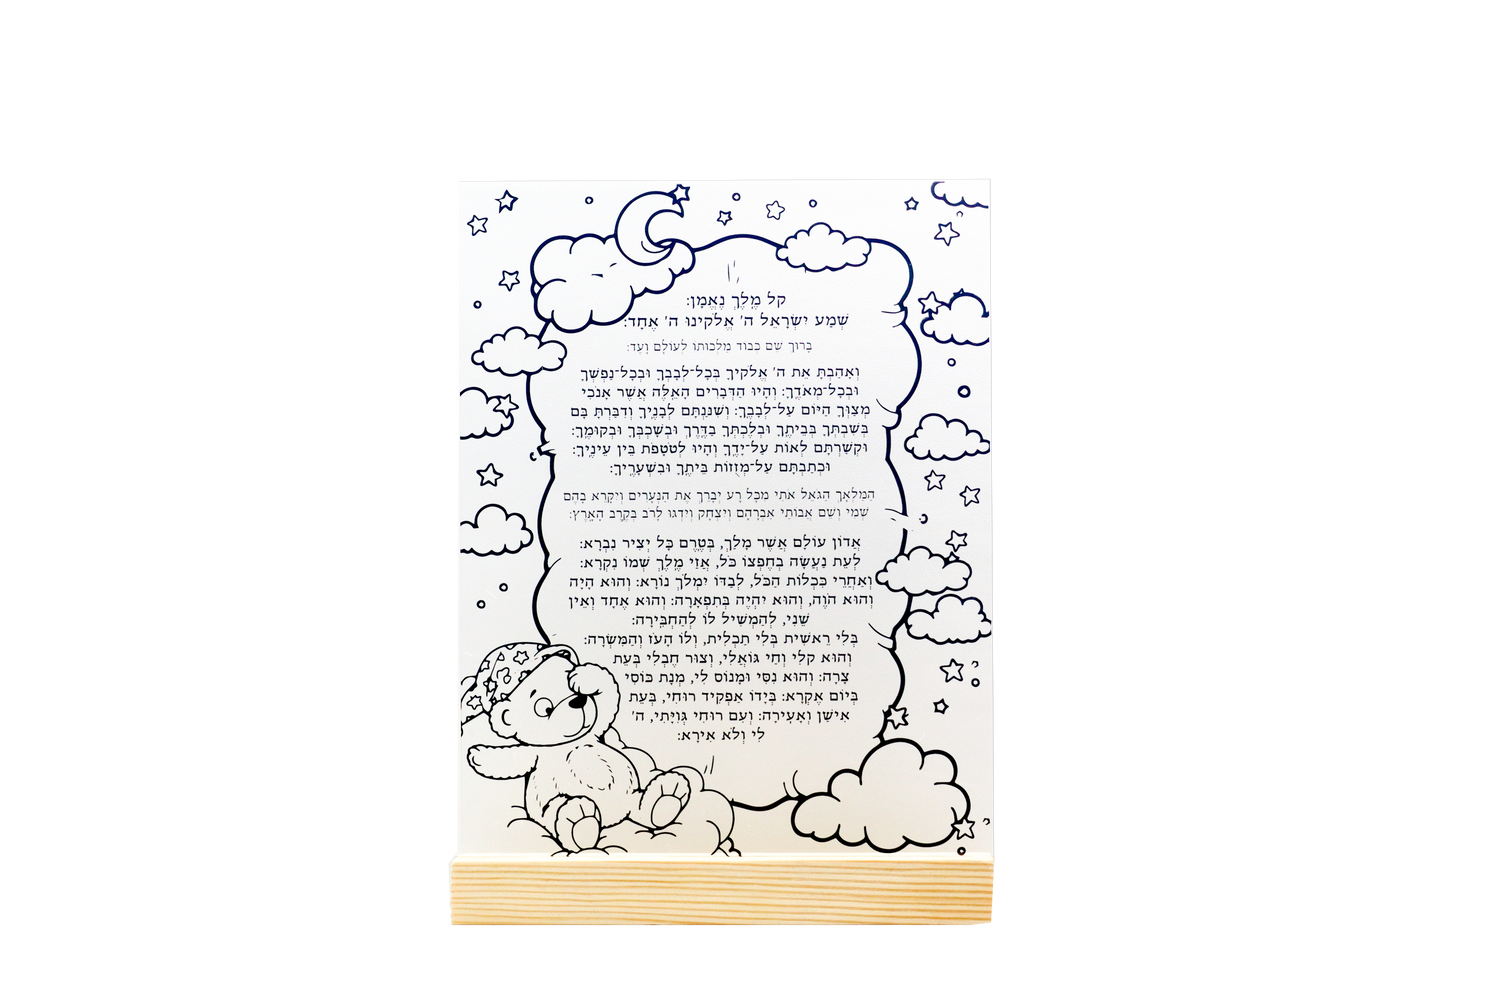 קל מֶלֶךְ נֶאֱמָן:
שְׁמַע יִשְׂרָאֵל ה' אֱלֹקֵינוּ ה' אֶחָד:
בָּרוּךְ שֵׁם כְּבוֹד מַלְכוּתוֹ לְעוֹלָם וָעֶד:
וְאָהַבְתָּ אֵת ה' אֱלֹקֶיךָ בְּכָל־לְבָבְךָ וּבְכָל־נַפְשְׁךָ
וּבְכָל־מְאֹדֶךָ: וְהָיוּ הַדְּבָרִים הָאֵלֶּה אֲשֶׁר אָנֹכִי
מְצַוְּךָ הַיּוֹם עַל־לְבָבֶךָ: וְשִׁנַּנְתָּם לְבָנֶיךָ וְדִבַּרְתָּ בָּם
בְּשִׁבְתְּךָ בְּבֵיתֶךָ וּבְלֶכְתְּךָ בַדֶּרֶךְ וּבְשָׁכְבְּךָ וּבְקוּמֶךָ:
וּקְשַׁרְתָּם לְאוֹת עַל־יָדֶךָ וְהָיוּ לְטֹטָפֹת בֵּין עֵינֶיךָ:
וּכְתַבְתָּם עַל־מְזֻזוֹת בֵּיתֶךָ וּבִשְׁעָרֶיךָ:
הַמַּלְאָךְ הַגֹּאֵל אֹתִי מִכָּל רָע יְבָרֵךְ אֶת הַנְּעָרִים וְיִקָּרֵא בָהֶם
שְׁמִי וְשֵׁם אֲבוֹתַי אַבְרָהָם וְיִצְחָק וְיִדְגּוּ לָרֹב בְּקֶרֶב הָאָרֶץ:
אֲדוֹן עוֹלָם אֲשֶׁר מָלַךְ, בְּטֶרֶם כָּל יְצִיר נִבְרָא:
לְעֵת נַעֲשָׂה בְחֶפְצוֹ כֹּל, אֲזַי מֶלֶךְ שְׁמוֹ נִקְרָא:
וְאַחֲרֵי כִּכְלוֹת הַכֹּל, לְבַדּוֹ יִמְלֹךְ נוֹרָא: וְהוּא הָיָה
וְהוּא הֹוֶה, וְהוּא יִהְיֶה בְּתִפְאָרָה: וְהוּא אֶחָד וְאֵין
שֵׁנִי, לְהַמְשִׁיל לוֹ לְהַחְבִּירָה:
בְּלִי רֵאשִׁית בְּלִי תַכְלִית, וְלוֹ הָעֹז וְהַמִּשְׂרָה:
וְהוּא קֵלִי וְחַי גּוֹאֲלִי, וְצוּר חֶבְלִי בְּעֵת
צָרָה: וְהוּא נִסִּי וּמָנוֹס לִי, מְנָת כּוֹסִי
בְּיוֹם אֶקְרָא: בְּיָדוֹ אַפְקִיד רוּחִי, בְּעֵת
אִישַׁן וְאָעִירָה: וְעִם רוּחִי גְּוִיָּתִי, ה'
לִי וְלֹא אִירָא: